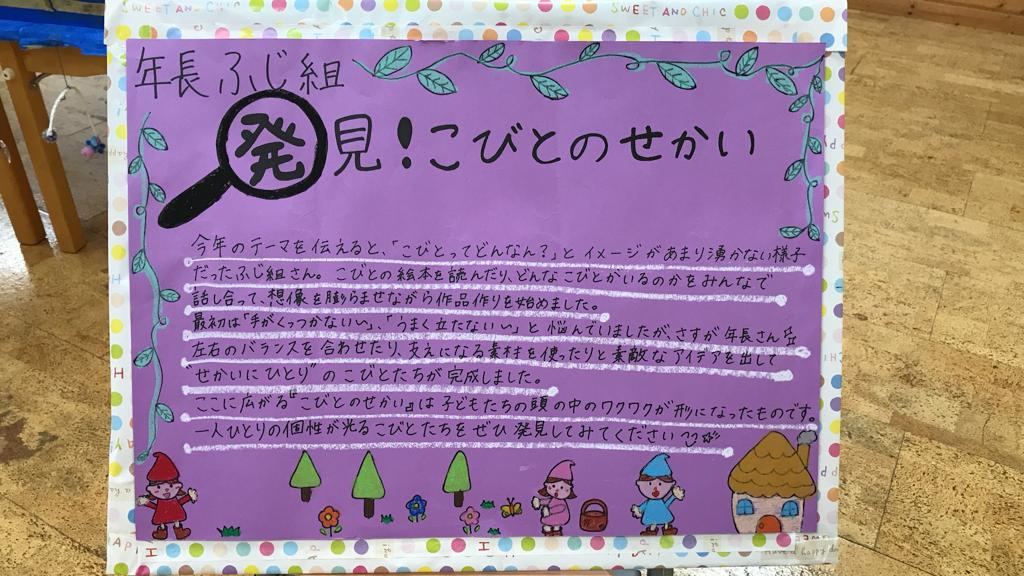 SWEET AND CHIC
SWEET AND CHIC
年長ふじ組
発見!こびとのせかい
今年のテーマを伝えると、「こびとってどんなん?」とイメージがあまり湧かない様子
だったふじ組さん。こびとの絵本を読んだり、どんなこびとがいるのかをみんなで
話し合って、想像を膨らませながら作品作りを始めました。
最初は「手がくっつかない〜」、「うまく立たない〜」と悩んでいましたが、さすが年長さん
左右のバランスを合わせたり、支えになる素材を使ったりと素敵なアイデアを出して
"せかいにひとり"のこびとたちが完成しました。
ここに広がる『こびとのせかい』は子どもたちの頭の中のワクワクが形になったものです。
一人ひとりの個性が光るこびとたちをぜひ発見してみてください